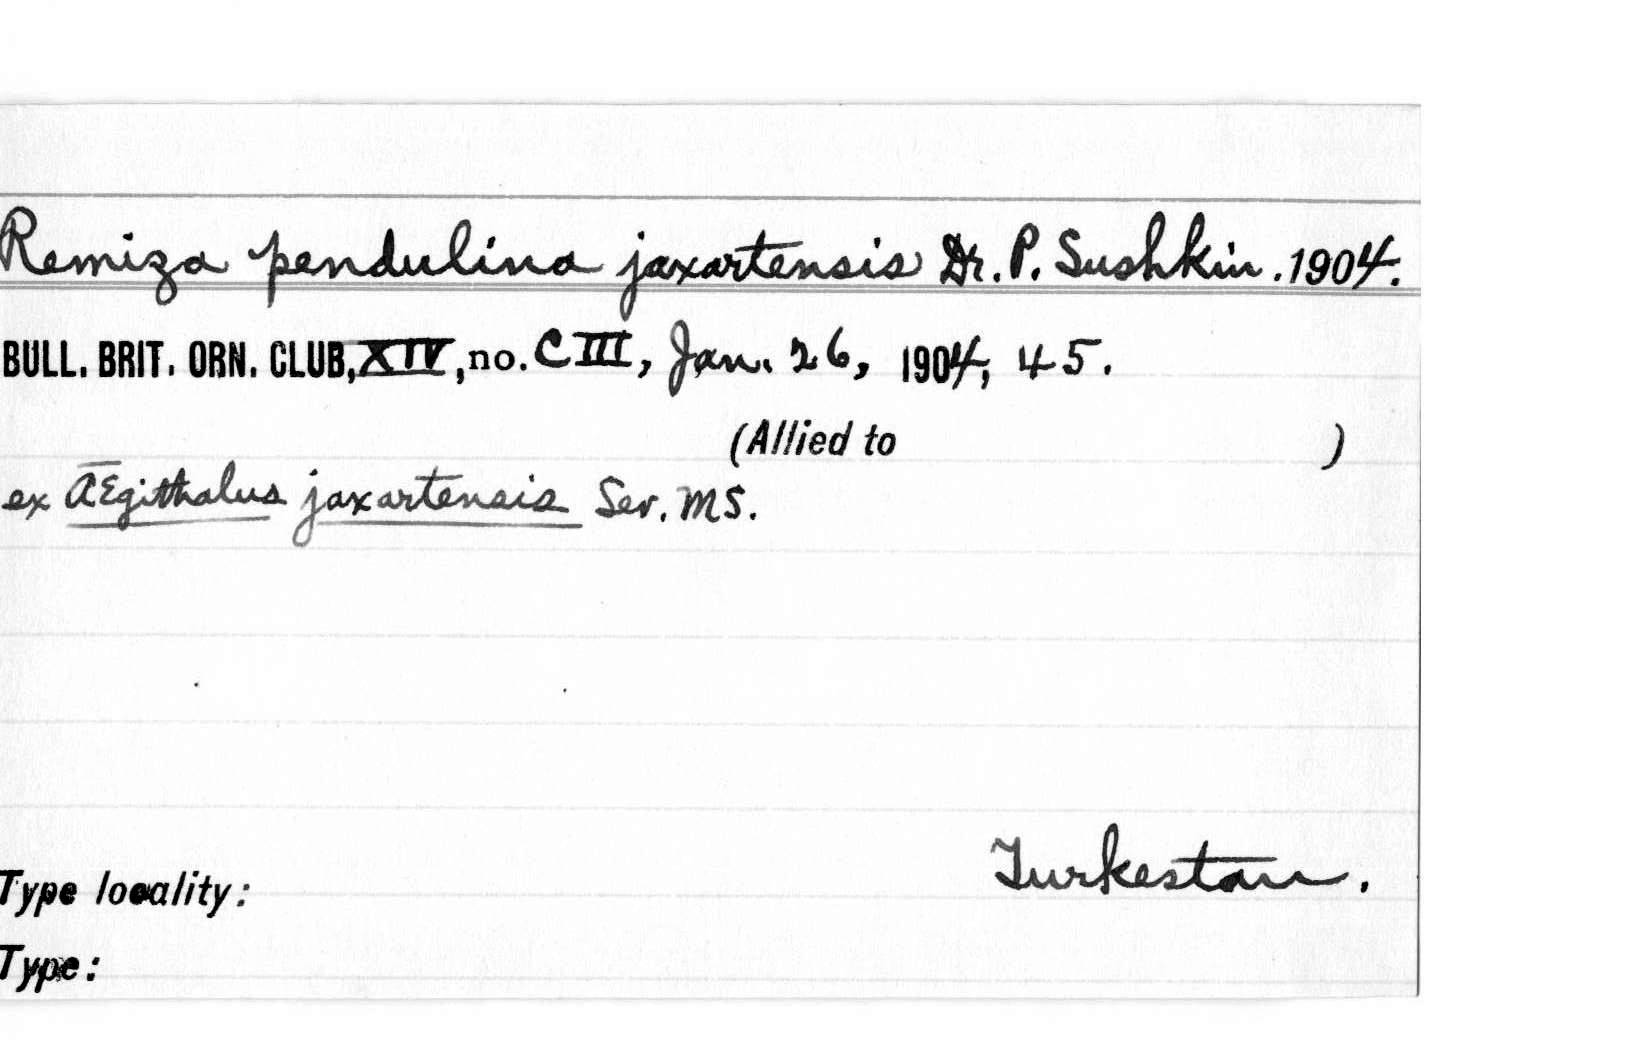 Remiza pendulina jaxartensis Dr. P. Sushkin. 1904.
BULL. BRIT. ORN. CLUB, XIV, no. CIII, Jan. 26, 1904, 45.
(Allied to )
ex AEgithalus jaxartensis Sev. MS.
Turkestan.
Type locality:
Type: